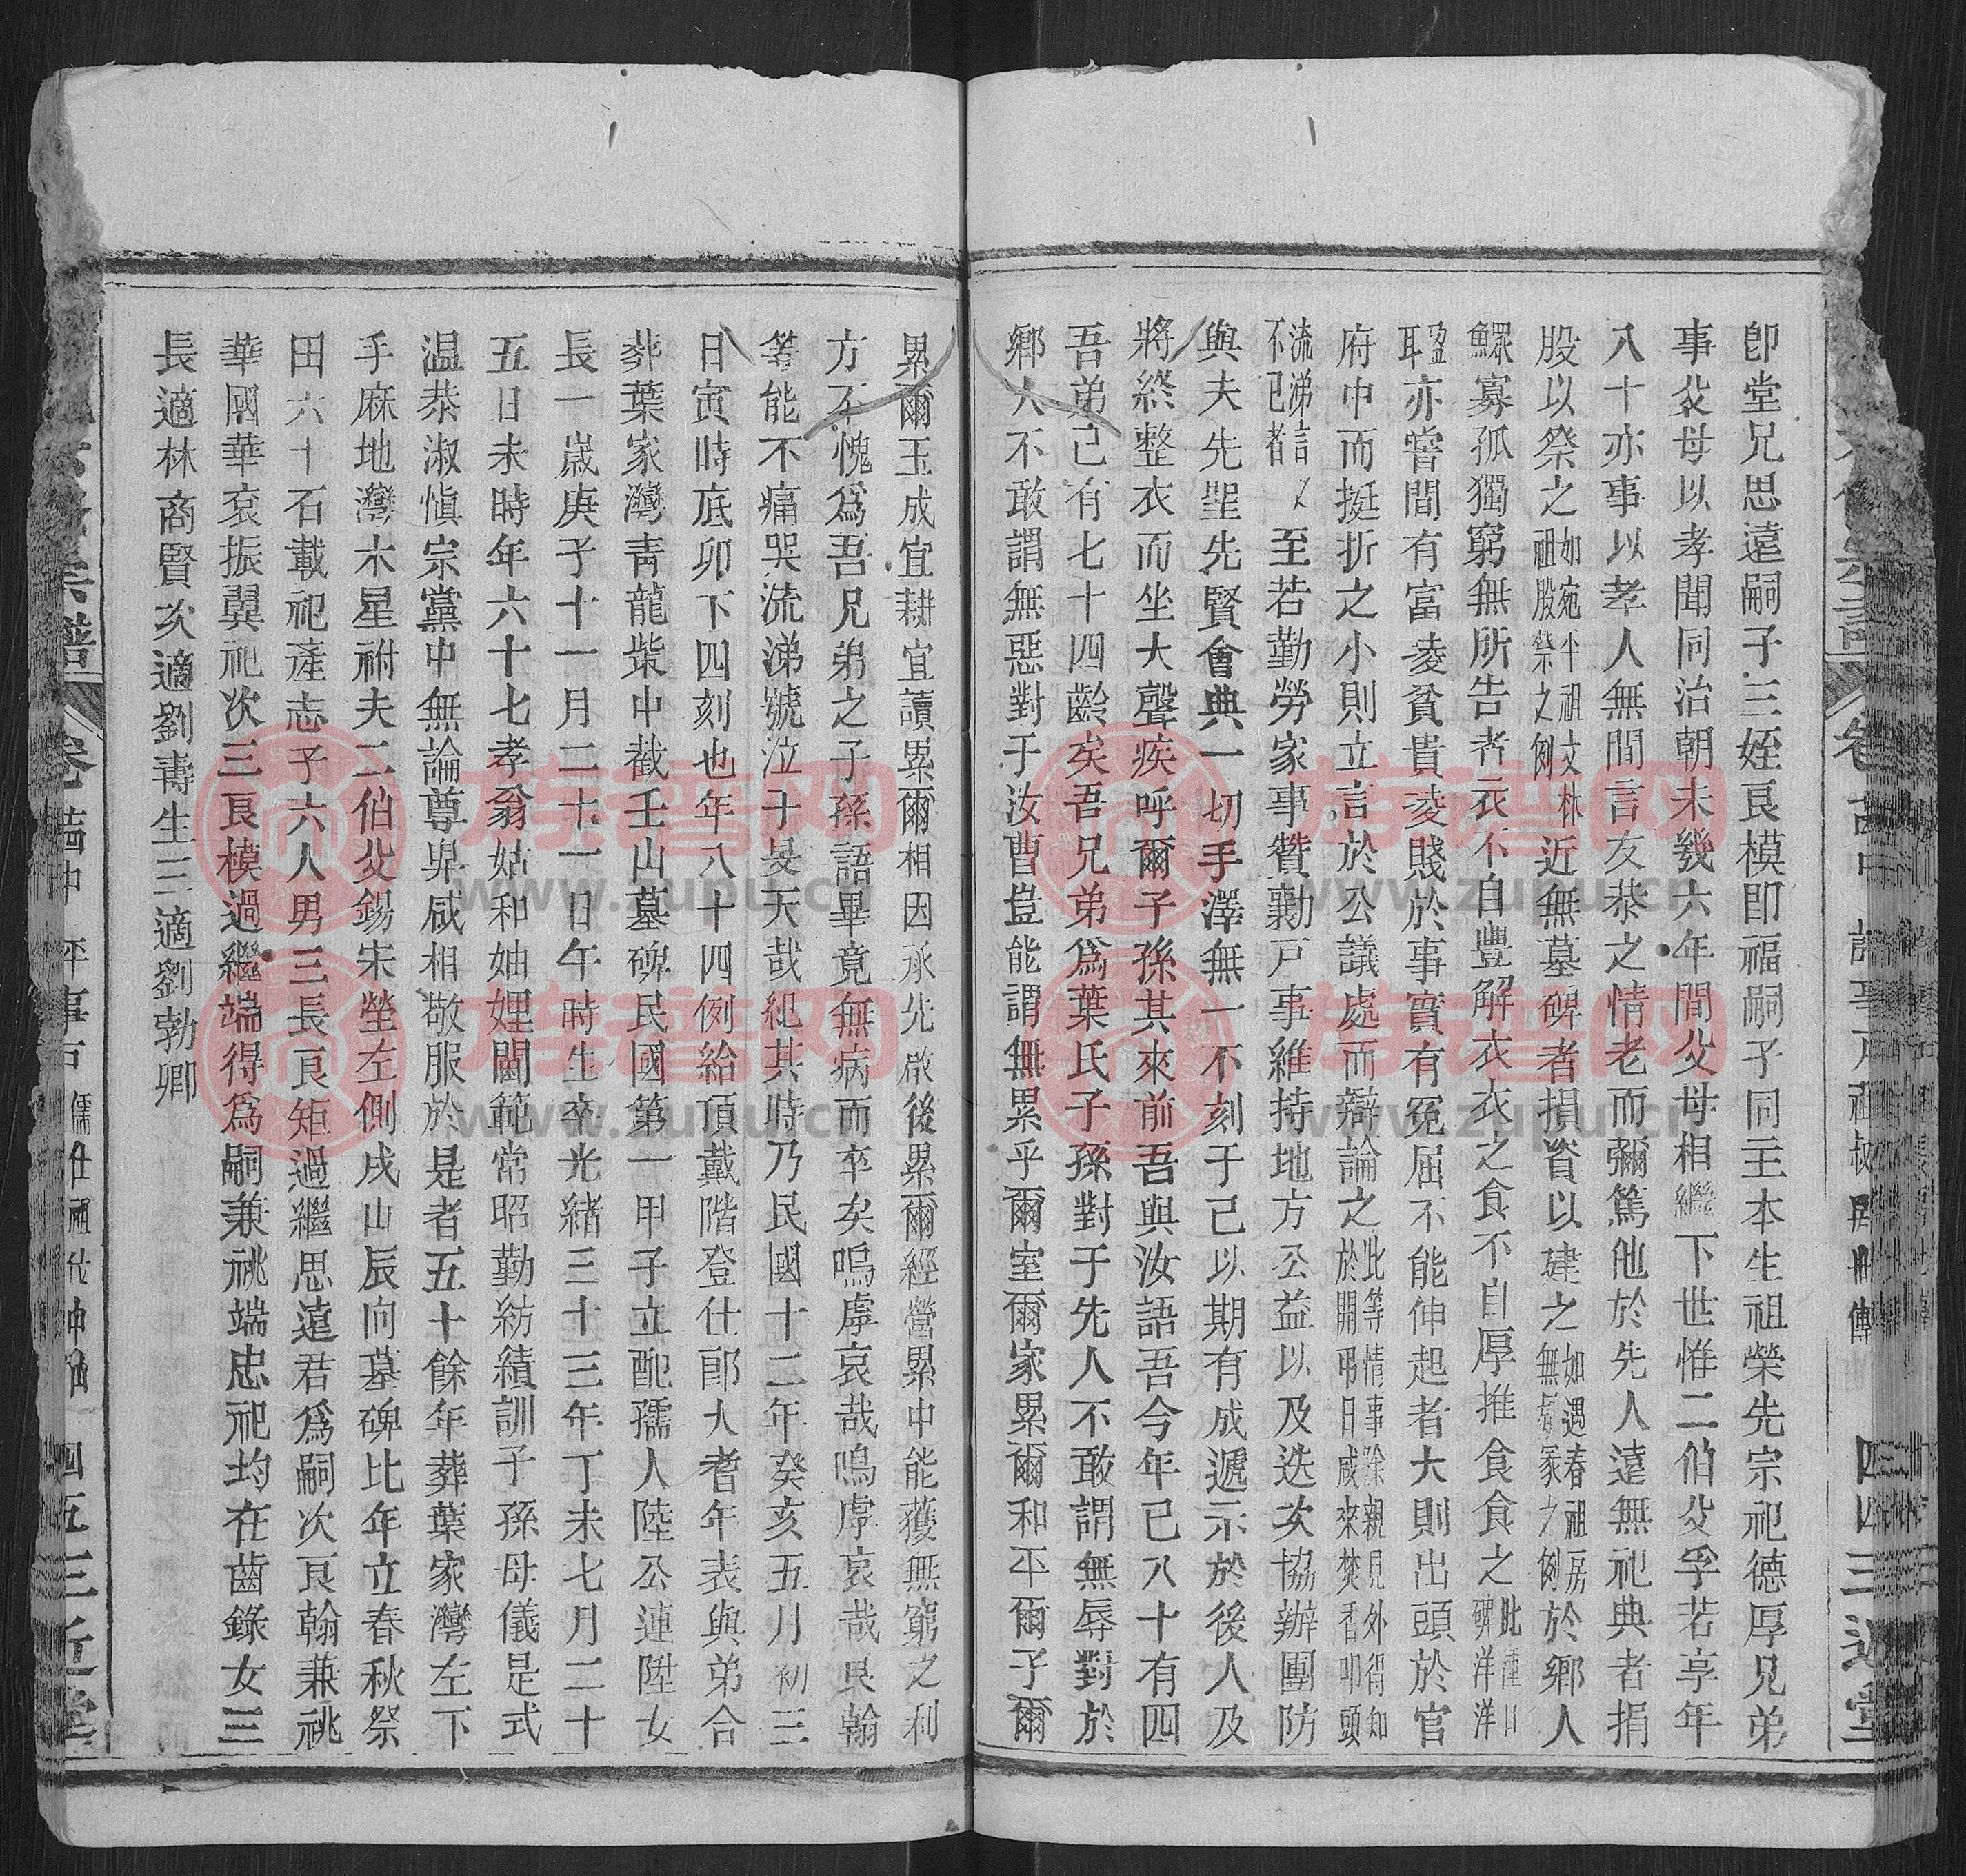 卽堂兄思遠嗣子三姪良模即福嗣子同主本生祖榮先宗祀德厚兄弟
事父母以孝聞同治朝未幾六年間父母相繼下世惟二伯父孚若享年
八十亦事以孝人無間言友恭之情老而彌篤他於先人遠無祀典者捐
股以祭之如宛平祖文林祖股祭之例近無墓碑者損資以建之如遇春祖房無嗣家之例於鄉人
鰥寡孤獨窮無所告者衣不自豐解衣衣之食不自厚推食食之碑洋洋
盈耳亦嘗間有富凌貧貴凌賤於事實有冤屈不能伸起者大則出頭於官
府中而挺折之小則立言於公議處而辯論之此等情事除親見外得知於開弔日咸來焚香叩頭
流涕言不已者至若勤勞家事贊勷戶事維持地方公益以及迭次協辦團防
與夫先聖先賢會典一切手澤無一不刻于己以期有成遞示於後人及
將終整衣而坐大聲疾呼爾子孫其來前吾與汝語吾今年已八十有四
吾弟已有七十四齡矣吾兄弟爲葉氏子孫對于先人不敢謂無辱對於
鄉人不敢謂無惡對于汝曹豈能謂無累乎爾室爾家累爾和平爾子爾
累爾玉成宜耕宜讀累爾相因承先啟後累爾經營累中能獲無窮之利
方不愧爲吾兄弟之子孫語畢竟無病而卒矣嗚虖哀哉嗚虖哀哉良翰
等能不痛哭流涕號泣于旻天哉紀其時乃民國十二年癸亥五月初三
日寅時底卯下四刻也年八十四例給頂戴階登仕郎大耆年表與弟合
葬葉家灣靑龍柴中截壬山墓碑民國第一甲子立配孺人陸公連陞女
長一歲庚子十一月二十一日午時生卒光緒三十三年丁未七月二十
五日未時年六十七孝翁姑和妯娌閫範常昭勤紡績訓子孫母儀是式
温恭淑愼宗黨中無論尊卑咸相敬服於是者五十餘年葬葉家灣左下
手麻地灣木星祔夫二伯父錫宋塋左側戌山辰向墓碑比年立春秋祭
田六十石載祀產志子六人男三長良矩過繼思遠君爲嗣次良翰兼祧
華國華袞振翼祀次三良模過繼端得爲嗣兼祧端忠祀均在齒錄女三
長適林商賢次適劉壽生三適劉勃卿
四五三近堂